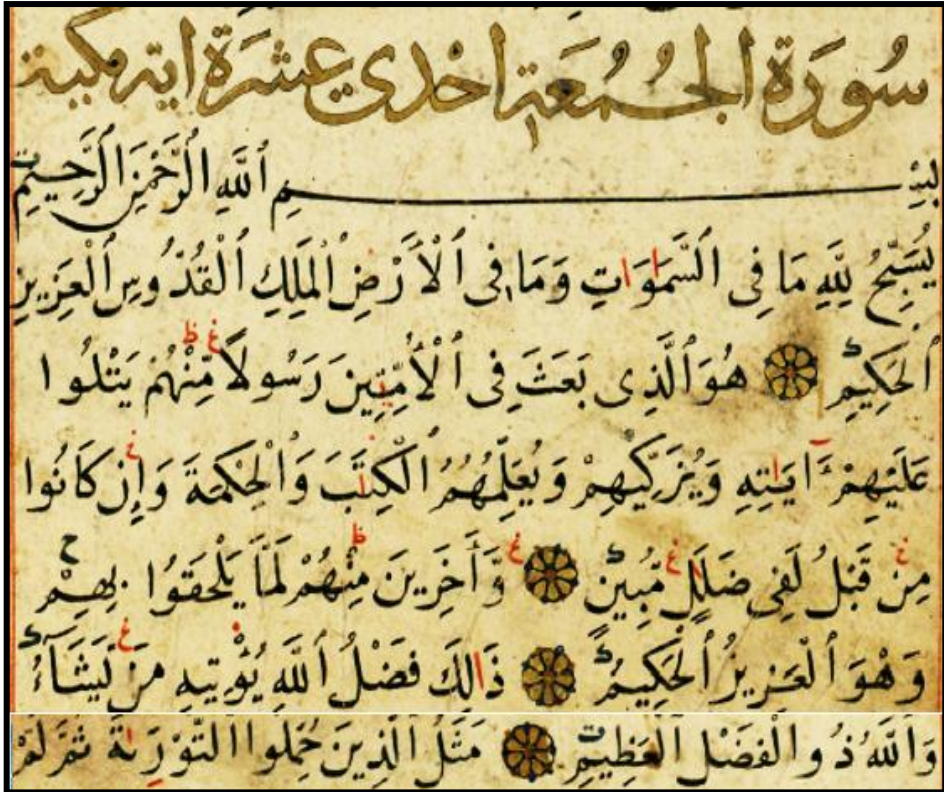 سُورَة الجُمُعَة احْدى عَشْرَة ايه مكية
بِسْمِ ٱللَّهِ ٱلرَّحْمَٰنِ ٱلرَّحِيمِ
يُسَبِّحُ لِلَّهِ مَا فِى ٱلسَّمَٰوَٰتِ وَمَا فِى ٱلْأَرْضِ ٱلْمَلِكِ ٱلْقُدُّوسِ ٱلْعَزِيزِ
ٱلْحَكِيمِ هُوَ ٱلَّذِى بَعَثَ فِى ٱلْأُمِّيِّينَ رَسُولًا مِّنْهُمْ يَتْلُوا
عَلَيْهِمْ ءَايَٰتِهِ وَيُزَكِّيهِمْ وَيُعَلِّمُهُمُ ٱلْكِتَٰبَ وَٱلْحِكْمَةَ وَإِن كَانُوا
مِن قَبْلُ لَفِى ضَلَٰلٍ مُّبِينٍ وَّأَخَرِينَ مِنْهُمْ لَمَّا يَلْحَقُوا بِهِمْ
وَهْوَ ٱلْعَزِيزُ ٱلْحَكِيمُ ذَٰلِكَ فَضْلُ ٱللَّهِ يُؤْتِيهِ مَن يَشَآءُ
وَٱللَّهُ ذُو ٱلْفَضْلِ ٱلْعَظِيمِ مَثَلُ ٱلَّذِينَ حُمِّلُوا ٱلتَّوْرَىٰةَ ثُمَّ لَمْ